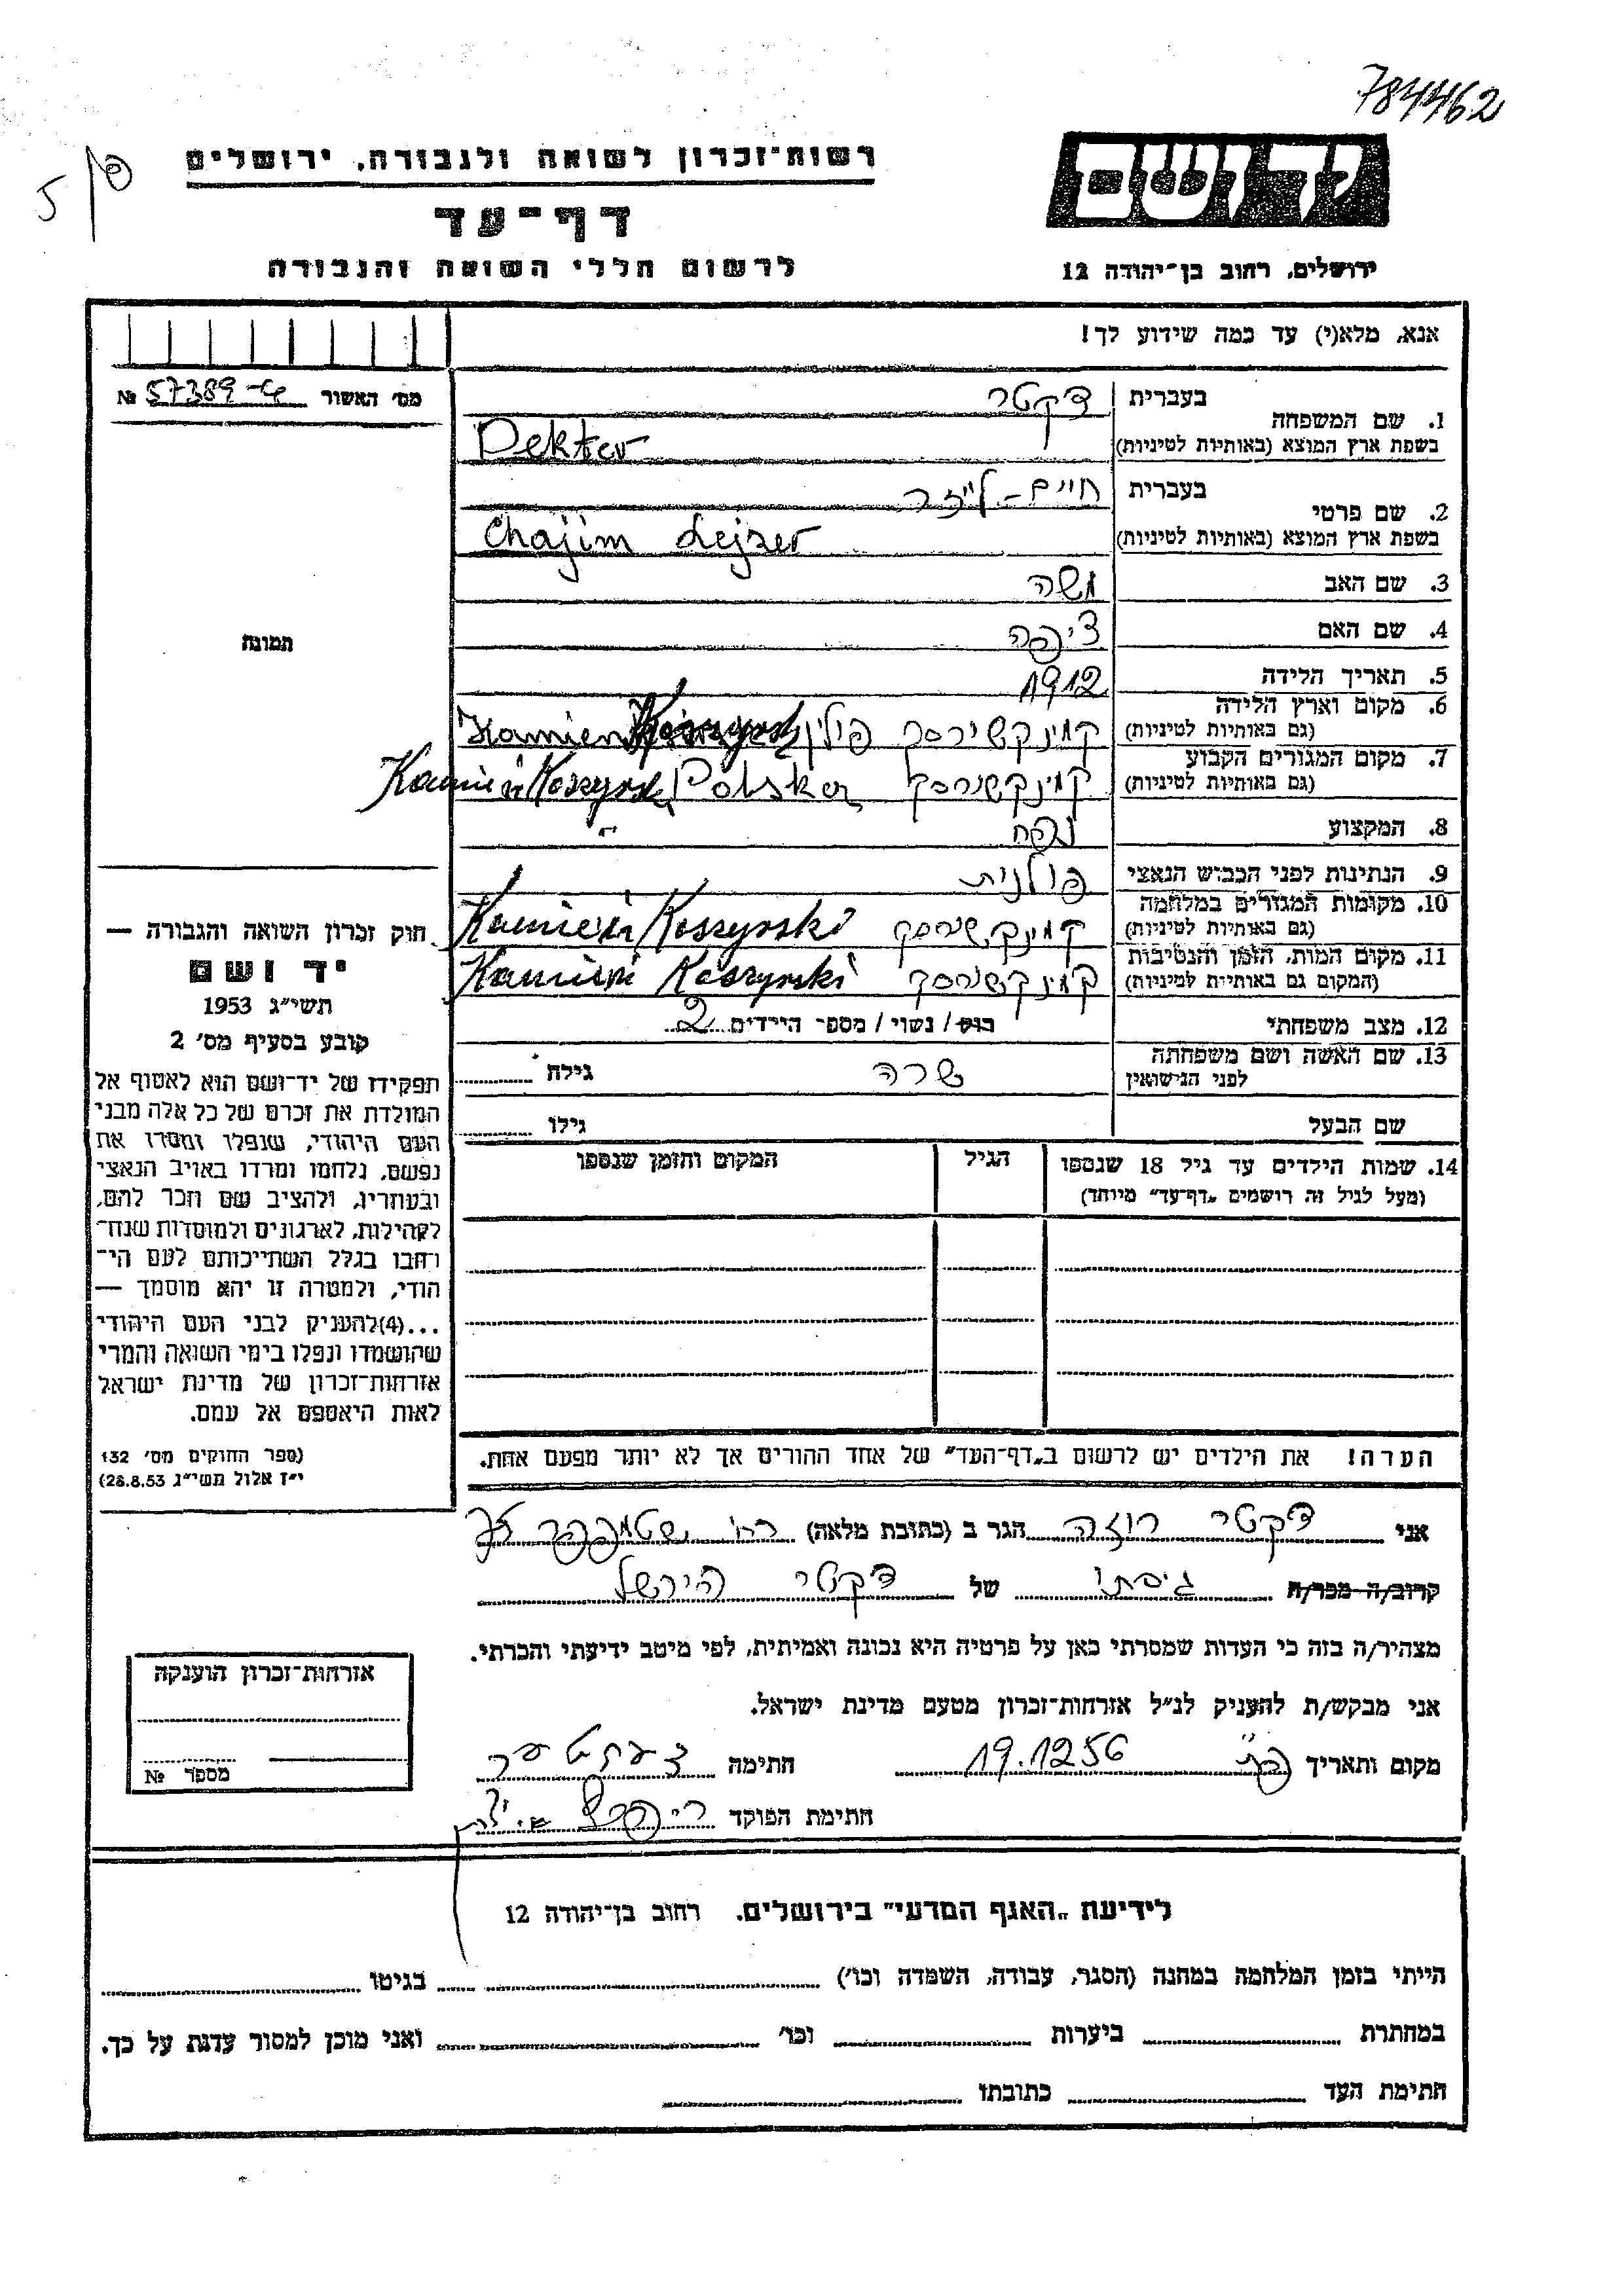 784462
5/פ
רשות־זכרון לשואה ולגבורה, ירושלים
יד ושם
דף־עד
לרשום חללי השואה והגבורה
ירושלים, רחוב בן־יהודה 12
אנא, מלא(י) עד כמה שידוע לך!
מס׳ האשור № 57389
1. שם המשפחה
בעברית דקטר
בשפת ארץ המוצא (באותיות לטיניות) Dekter
2. שם פרטי
בעברית חיים־לייזר
בשפת ארץ המוצא (באותיות לטיניות) Chajim Lejzer
3. שם האב משה
4. שם האם ציפה
5. תאריך הלידה 1912
6. מקום וארץ הלידה
(גם באותיות לטיניות) קמינקשירסק פולין Kamien Koszyrski
7. מקום המגורים הקבוע
(גם באותיות לטיניות) קמינקשירסק Kamień Koszyrski Polska
8. המקצוע נפח
9. הנתינות לפני הכבוש הנאצי פולנית
10. מקומות המגורים במלחמה
(גם באותיות לטיניות) קמינקשירסק Kamień Koszyrski
11. מקום המות, הזמן והנסיבות
(המקום גם באותיות לטיניות) קמינקשירסק Kamień Koszyrski
12. מצב משפחתי רווק / נשוי / מספר הילדים 2
13. שם האשה ושם משפחתה
לפני הנישואין שרה גילה
שם הבעל גילו
14. שמות הילדים עד גיל 18 שנספו
(מעל לגיל זה רושמים „דף־עד״ מיוחד)
הגיל
המקום והזמן שנספו
הערה! את הילדים יש לרשום ב„דף־העד״ של אחד ההורים אך לא יותר מפעם אחת.
תמונה
חוק זכרון השואה והגבורה —
יד ושם
תשי״ג 1953
קובע בסעיף מס׳ 2
תפקידו של יד־ושם הוא לאסוף אל
המולדת את זכרם של כל אלה מבני
העם היהודי, שנפלו ומסרו את
נפשם, נלחמו ומרדו באויב הנאצי
ובעוזריו, ולהציב שם וזכר להם,
לקהילות, לארגונים ולמוסדות שנח־
רבו בגלל השתייכותם לעם הי־
הודי, ולמטרה זו יהא מוסמך —
...(4) להעניק לבני העם היהודי
שהושמדו ונפלו בימי השואה והמרי
אזרחות־זכרון של מדינת ישראל
לאות היאספם אל עמם.
(ספר החוקים מס׳ 132
י״ז אלול תשי״ג 28.8.53)
אני דקטר רוזה הגר ב (כתובת מלאה) רח׳ שטמפפר
קרוב/ה מכר/ה גיסתו של דקטר הירשל
מצהיר/ה בזה כי העדות שמסרתי כאן על פרטיה היא נכונה ואמיתית, לפי מיטב ידיעתי והכרתי.
אני מבקש/ת להעניק לנ״ל אזרחות־זכרון מטעם מדינת ישראל.
מקום ותאריך פ״ת 19.12 56 חתימה דעקטער
חתימת הפוקד
אזרחות־זכרון הוענקה
מספר №
לידיעת „האגף המדעי״ בירושלים, רחוב בן־יהודה 12
הייתי בזמן המלחמה במחנה (הסגר, עבודה, השמדה וכו׳) בגיטו
במחתרת ביערות וכו׳ ואני מוכן למסור עדות על כך.
חתימת העד כתובתו